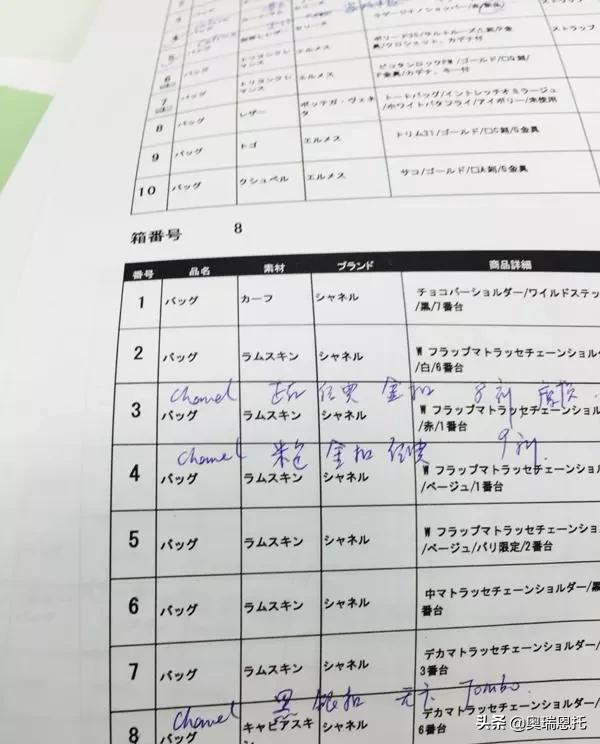 4
5
6 バッグ トリヨンクレマンス エルメス ボリード35
7 バッグ トリヨンクレマンス エルメス ピコタンロックPM/ゴールド/□G刻/
8 バッグ レザー ボッテガ・ヴェネタ トートバッグ/イントレッチオミラージュ/ホワイトバタフライ/アイボリー/未使用
9 バッグ トゴ エルメス トリム31/ゴールド/□G刻/G金具
10 バッグ クシュベル エルメス サコ/ゴールド/□A刻/G金具
箱番号 8
番号 品名 素材 ブランド 商品詳細
1 バッグ カーフ シャネル チョコバーショルダー/ワイルドステッ
/黒/7番台
2 バッグ ラムスキン シャネル W フラップマトラッセチェーンショルダ
/白/6番台
Chanel 金扣
3 バッグ ラムスキン シャネル W フラップマトラッセチェーンショル
/赤/1番台
Chanel 米色 金扣
4 バッグ ラムスキン シャネル W フラップマトラッセチェーンショル
/ベージュ/1番台
5 バッグ ラムスキン シャネル W フラップマトラッセチェーンショル
/ベージュ/パリ限定/2番台
6 バッグ ラムスキン シャネル 中マトラッセチェーンショルダー/黒
番台
7 バッグ ラムスキン シャネル デカマトラッセチェーンショルダー/
3番台
Chanel 黑 银扣 Jombo
8 バッグ キャビアスキ シャネル デカマトラッセチェーンショルダ
6番台
头条 @奥瑞恩托